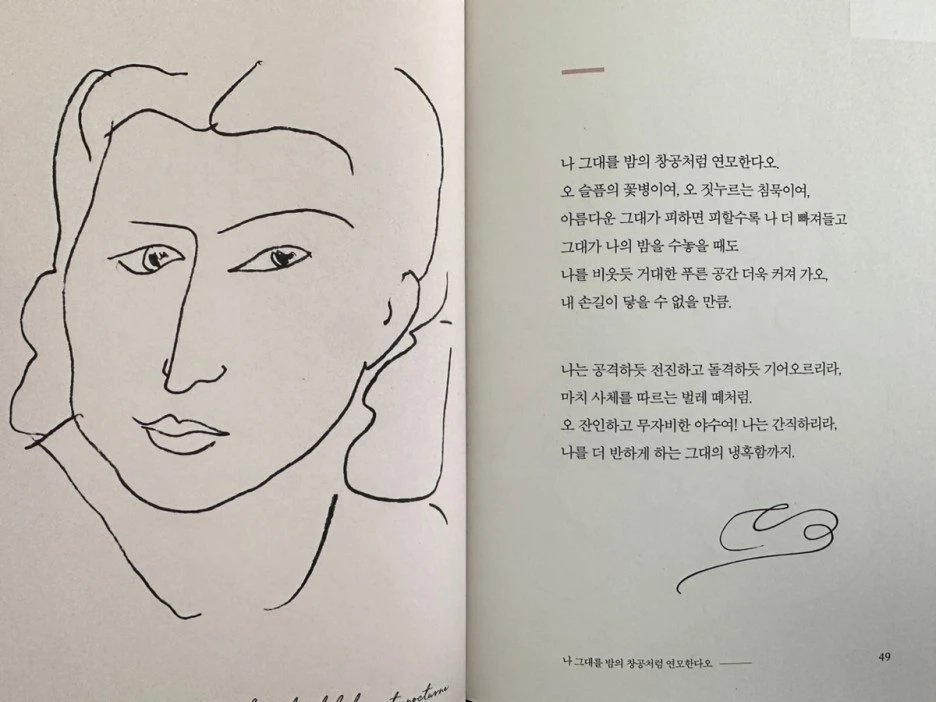 nocturne
나 그대를 밤의 창공처럼 연모한다오.
오 슬픔의 꽃병이여, 오 짓누르는 침묵이여,
아름다운 그대가 피하면 피할수록 나 더 빠져들고
그대가 나의 밤을 수놓을 때도
나를 비웃듯 거대한 푸른 공간 더욱 커져 가오,
내 손길이 닿을 수 없을 만큼.
나는 공격하듯 전진하고 돌격하듯 기어오르리라,
마치 사체를 따르는 벌레 떼처럼.
오 잔인하고 무자비한 야수여! 나는 간직하리라,
나를 더 반하게 하는 그대의 냉혹함까지.
나 그대를 밤의 창공처럼 연모한다오
49